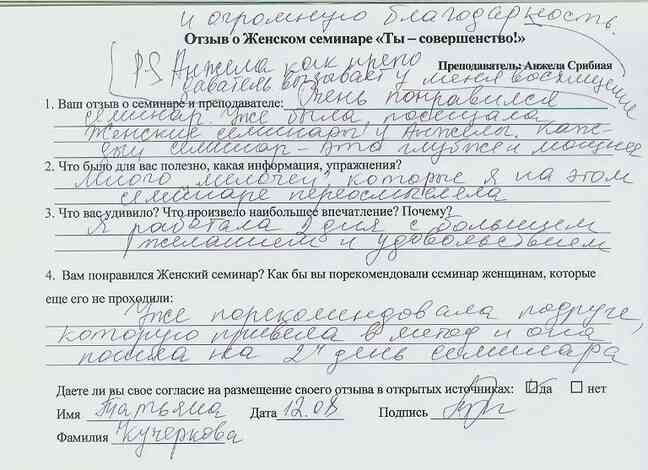 и огромную благодарность.
Отзыв о Женском семинаре «Ты – совершенство!»
P.S Анжела как препо
Преподаватель: Анжела Срибная
даватель вызывает у меня восхищение
1. Ваш отзыв о семинаре и преподавателе: Очень понравился
семинар. Уже была, посещала
Женские семинары у Анжелы. Каж-
дый семинар – это глубже и мощнее
2. Что было для вас полезно, какая информация, упражнения?
Много мелочей, которые я на этом
семинаре переосмыслела
3. Что вас удивило? Что произвело наибольшее впечатление? Почему?
Я работала 2 дня с большим
желанием и удовольствием
4. Вам понравился Женский семинар? Как бы вы порекомендовали семинар женщинам, которые
еще его не проходили:
Уже порекомендовала подруге,
которую привела в метод и она
пошла на 2й день семинара
Даете ли вы свое согласие на размещение своего отзыва в открытых источниках: да нет
Имя Татьяна Дата 12.08 Подпись
Фамилия Кучеркова